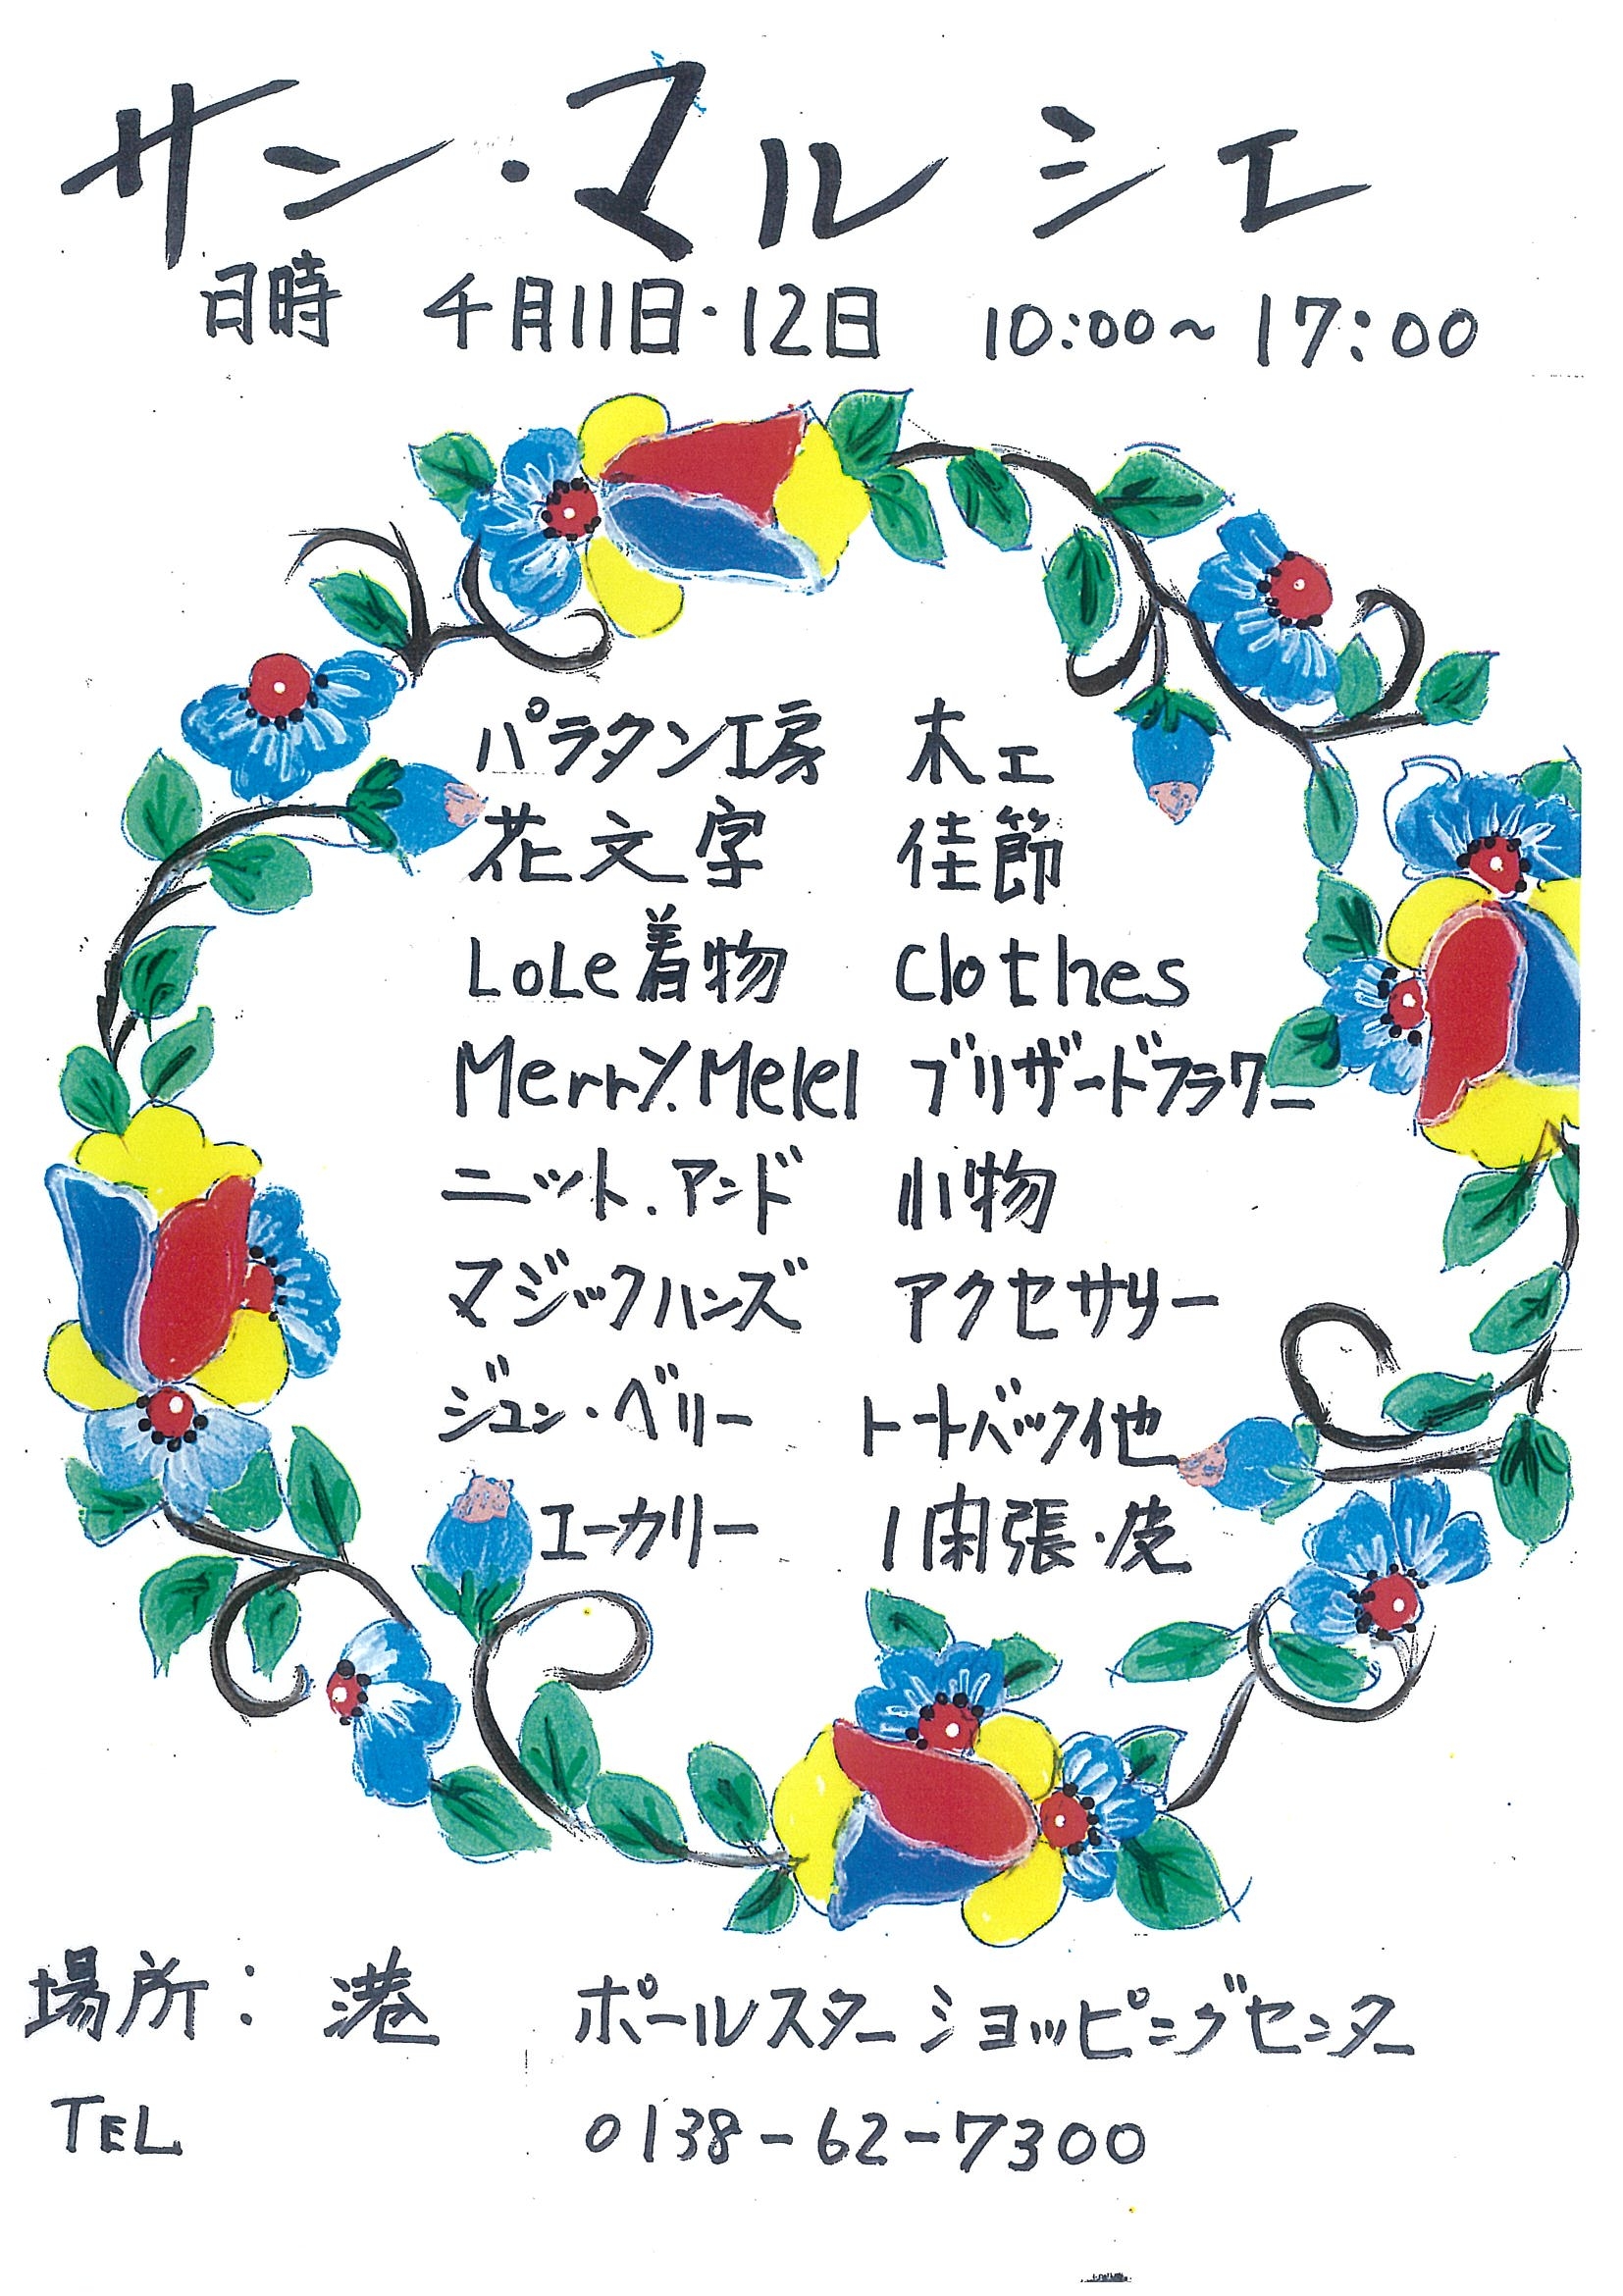 サン・マルシェ
日時 4月11日・12日 10:00~17:00
パラタン工房 木工
花文字 佳節
LoLe着物 Clothes
Merry.Melel ブリザードフラワー
ニット.アンド 小物
マジックハンズ アクセサリー
ジュン・ベリー トートバック他
エーカリー 1閑張・皮
場所: 港 ポールスターショッピングセンター
TEL 0138-62-7300